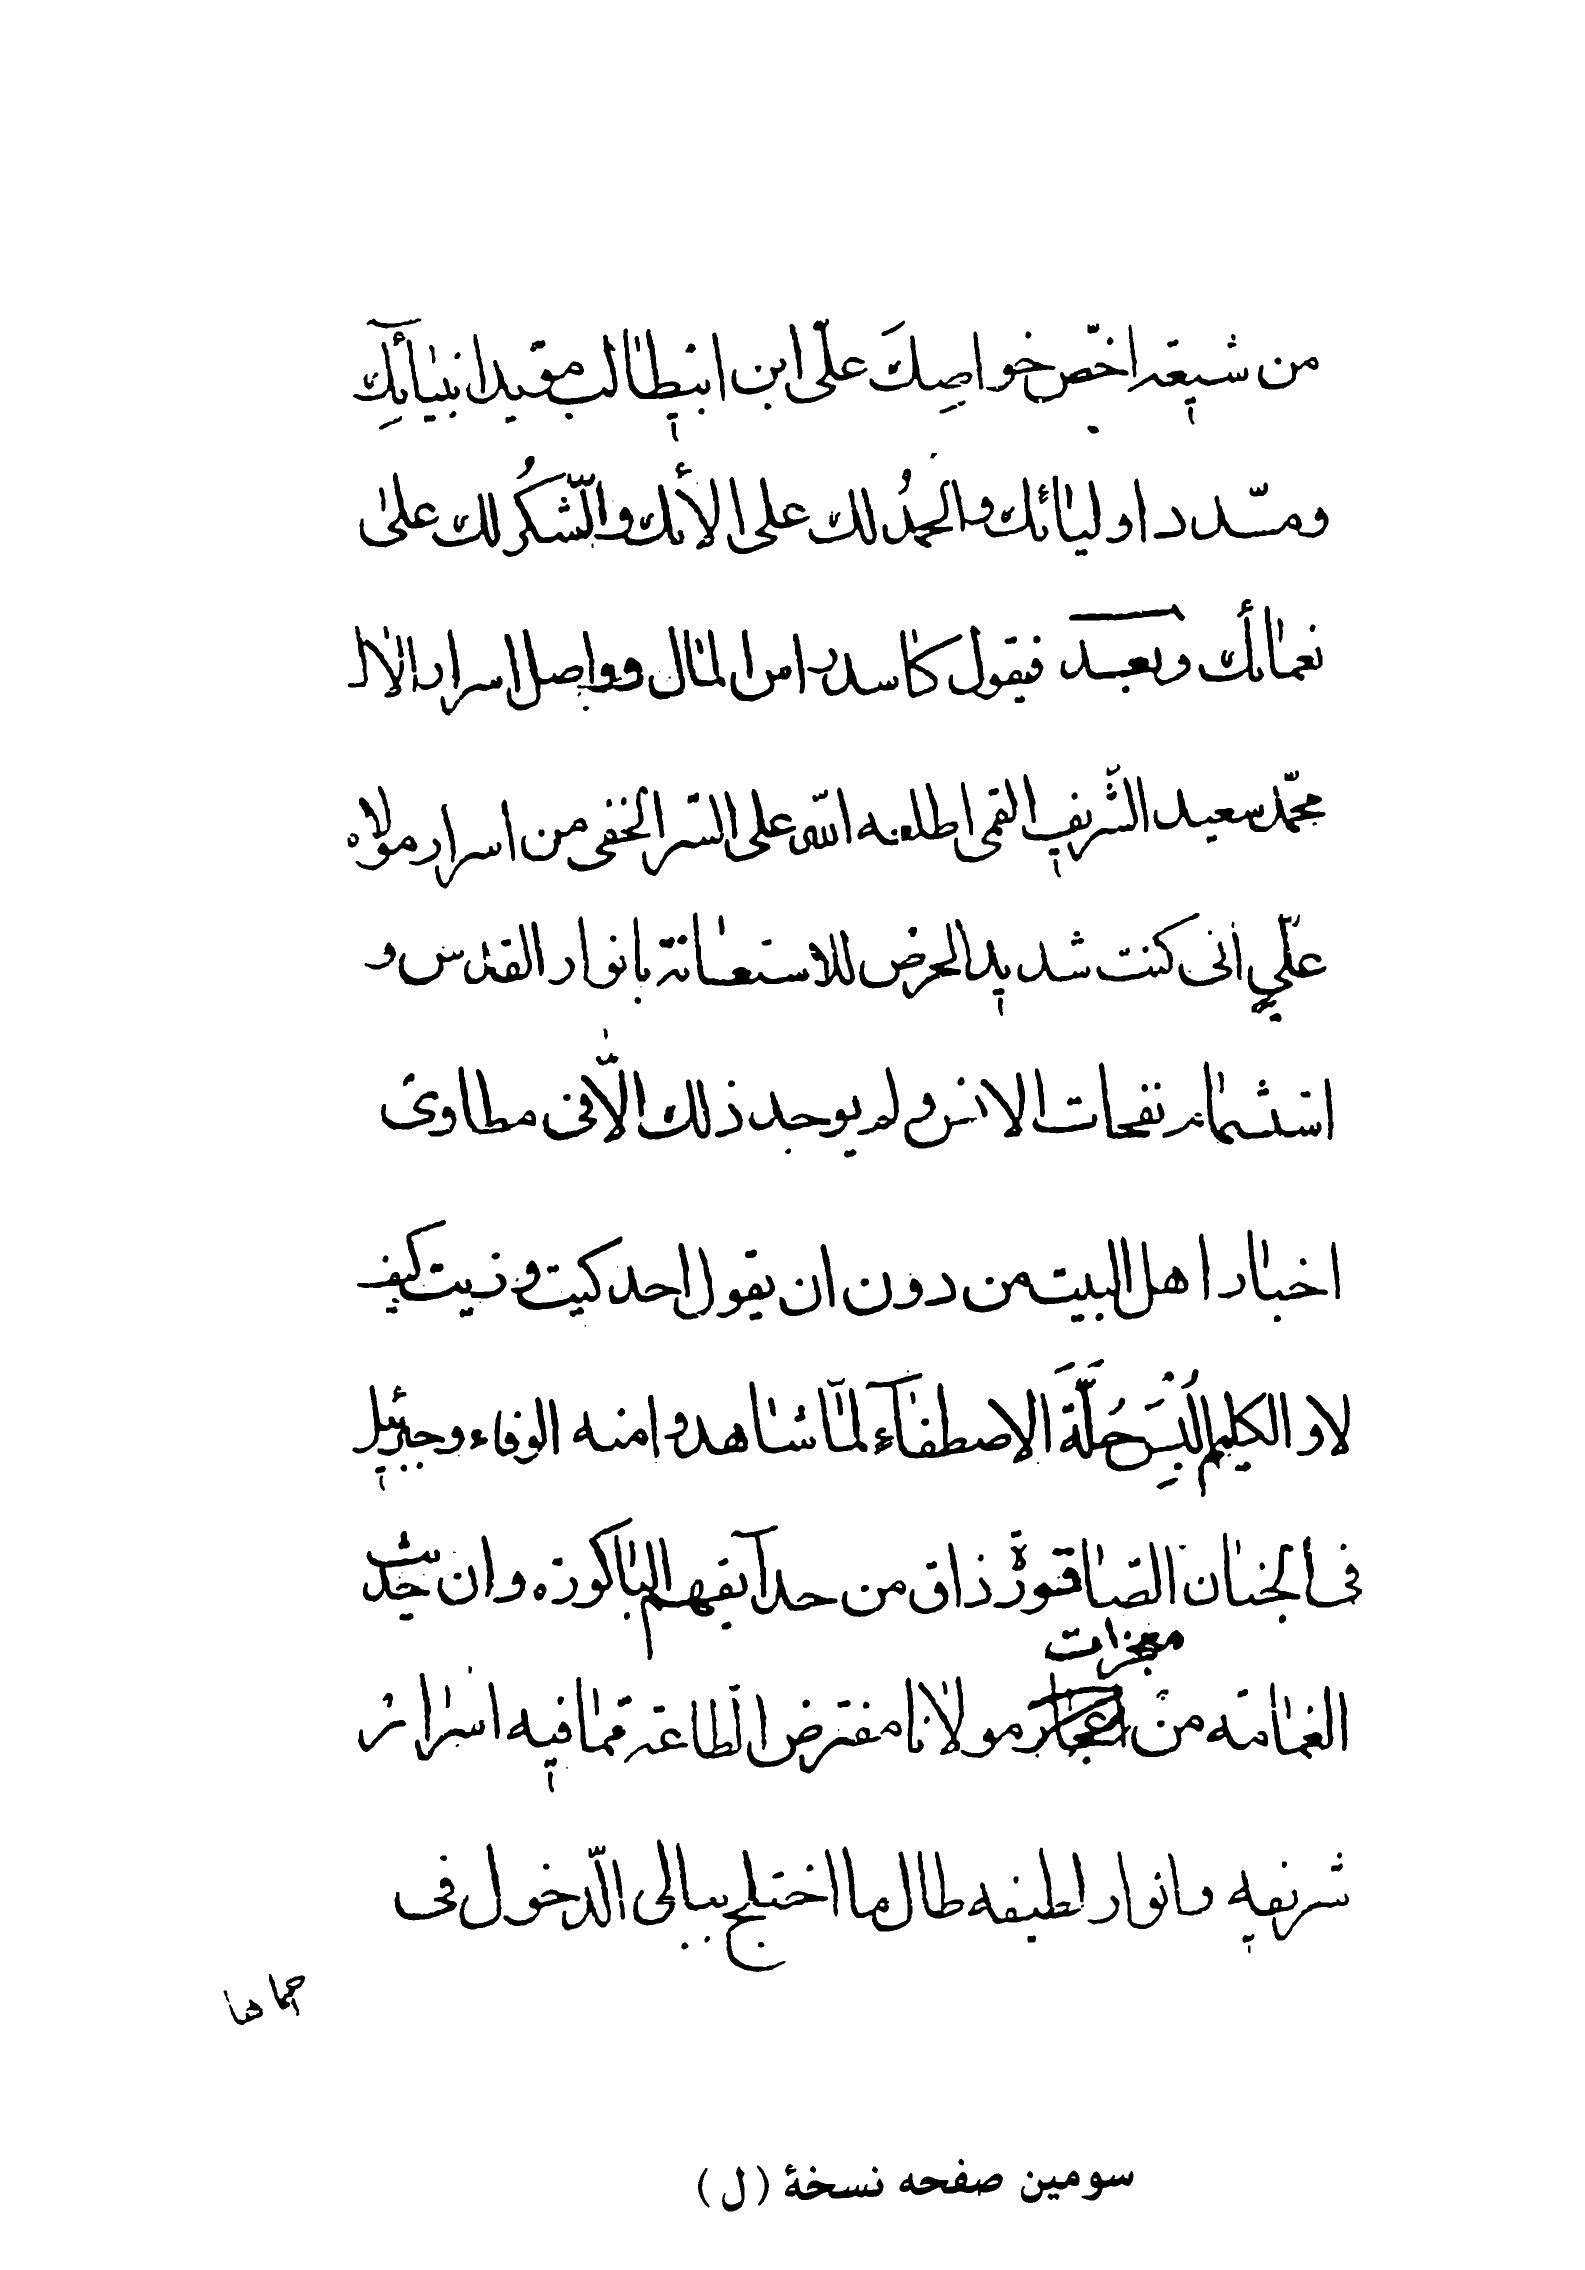 من شيعته اخصّ خواصِك علىّ ابن ابيطالب مقيد انبيآئكِ
ومسدد اوليائك والحمدُ لك على الائك والشّكرُ لك على
نعمائك وبعد فيقول كاسد راس المال وواصل اسرار الال
محمّد سعيد الشّريف القمى اطلعه اللّه على السّر الخفى من اسرار مولاه
علّيٍ انى كنت شديد الحرص للاستعانة بانوار القدس و
استشمام نفحات الانس ولم يوجد ذلك الّا فى مطاوى
اخبار اهل البيت من دون ان يقول احد كيت وذيت كيف
لا و الكليم اُلبْسِ حُلَّةَ الاصطفآء لمّا شاهدوا منه الوفاء وجبرئيل
فى الجنان الصّاقورة ذاق من حدآيقهم الباكورة وان حديث
معجزات
الغمامة من مولانا مفترض الطاعة مما فيه اسرار
شريفه وانوار لطيفه طال ما اختلج ببالى الدّخول فى
سومين صفحه نسخهٔ (ل)